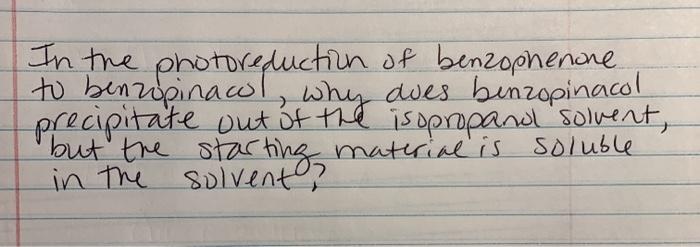 In the photoreduction of benzophenone
to benzopinacol, why does benzopinacol
precipitate out of the isopropanol solvent,
but the starting material is soluble
in the solvent?